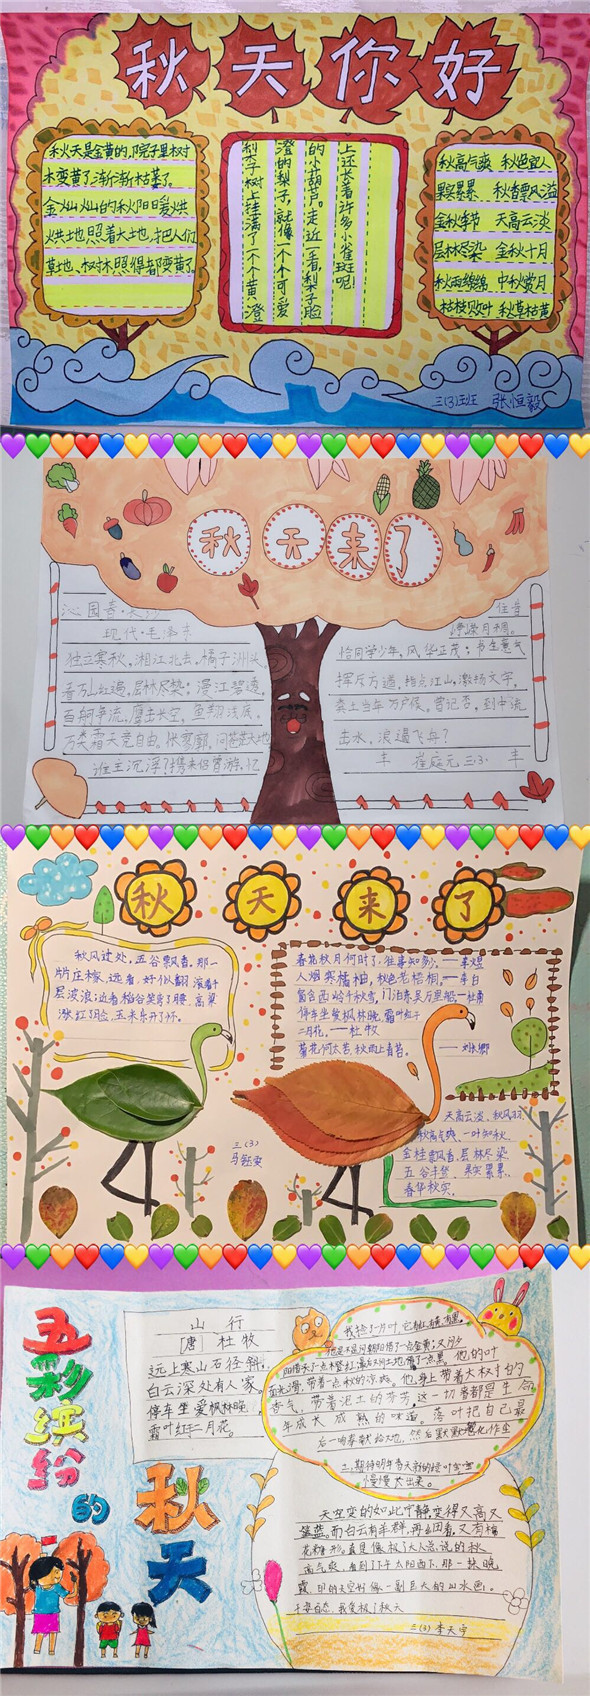 秋天你好
秋天是金黄的,院子里树
木变黄了渐渐枯萎了。
金灿灿的秋阳日暖烘
烘地照着大土地,把人们
草地、树木照得都变黄了。
梨子树上挂满了一个个黄澄
澄的梨子,就像一个个可爱
的小葫芦。走近一看,梨子脸
上还长着许多小雀斑呢!
秋高气爽 秋色宜人
果实累累 秋香飘溢
金秋季节 天高云淡
层林尽染 金秋十月
秋雨绵绵 中秋赏月
枯枝败叶 秋草枯黄
三(3)班 张恒毅
秋天来了
沁园春·长沙
现代·毛泽东
独立寒秋,湘江北去,橘子洲头。
看万山红遍,层林尽染;漫江碧透,
百舸争流。鹰击长空,鱼翔浅底,
万类霜天竞自由。怅寥廓,问苍茫大地
谁主沉浮?携来百侣曾游,忆
往昔
峥嵘月稠。
恰同学少年,风华正茂;书生意气
挥斥方遒。指点江山,激扬文字,
粪土当年万户侯。曾记否,到中流
击水,浪遏飞舟?
崔庭元 三·3·
秋天来了
秋风过处,五谷飘香,那一
片片庄稼,远看,好似翻滚着千
层波浪;近看,稻谷笑弯了腰,高粱
涨红了脸,玉米乐开了怀。
春花秋月何时了,往事知多少。——李煜
人烟寒橘柚,秋色老梧桐。——李白
窗含西岭千秋雪,门泊东吴万里船——杜甫
停车坐爱枫林晚,霜叶红于
二月花。——杜牧
菊花何太苦,秋雨上青苔。——刘长卿
三(3)
天高云淡、秋风习习
秋高气爽、一叶知秋
金桂飘香、层林尽染
五谷丰登 果实累累
春华秋实
五彩缤纷的秋天
山行
[唐] 杜牧
远上寒山石径斜,
白云深处有人家。
停车坐爱枫林晚,
霜叶红于二月花。
我捡了一片叶,它
面光滑,带着一点秋的凉爽。他身上带着大树的
香气,带着泥土的芬芳,这一切都是生命
年成长成熟的味道。落叶把自己最
后一吻奉献给大地,然后默默化作尘
土,期待明年春天新的绿叶
慢慢长出来。
天空变的如此宁静,变得又高又
蓝。而白云有羊群,再
花糖形。真是像极了大人常说的秋
高气爽,看到了下午太阳西下,那一抹晚
霞,印的天空好像一副巨大的山水画。
千姿百态,我爱极了秋天
三(3) 李天宇